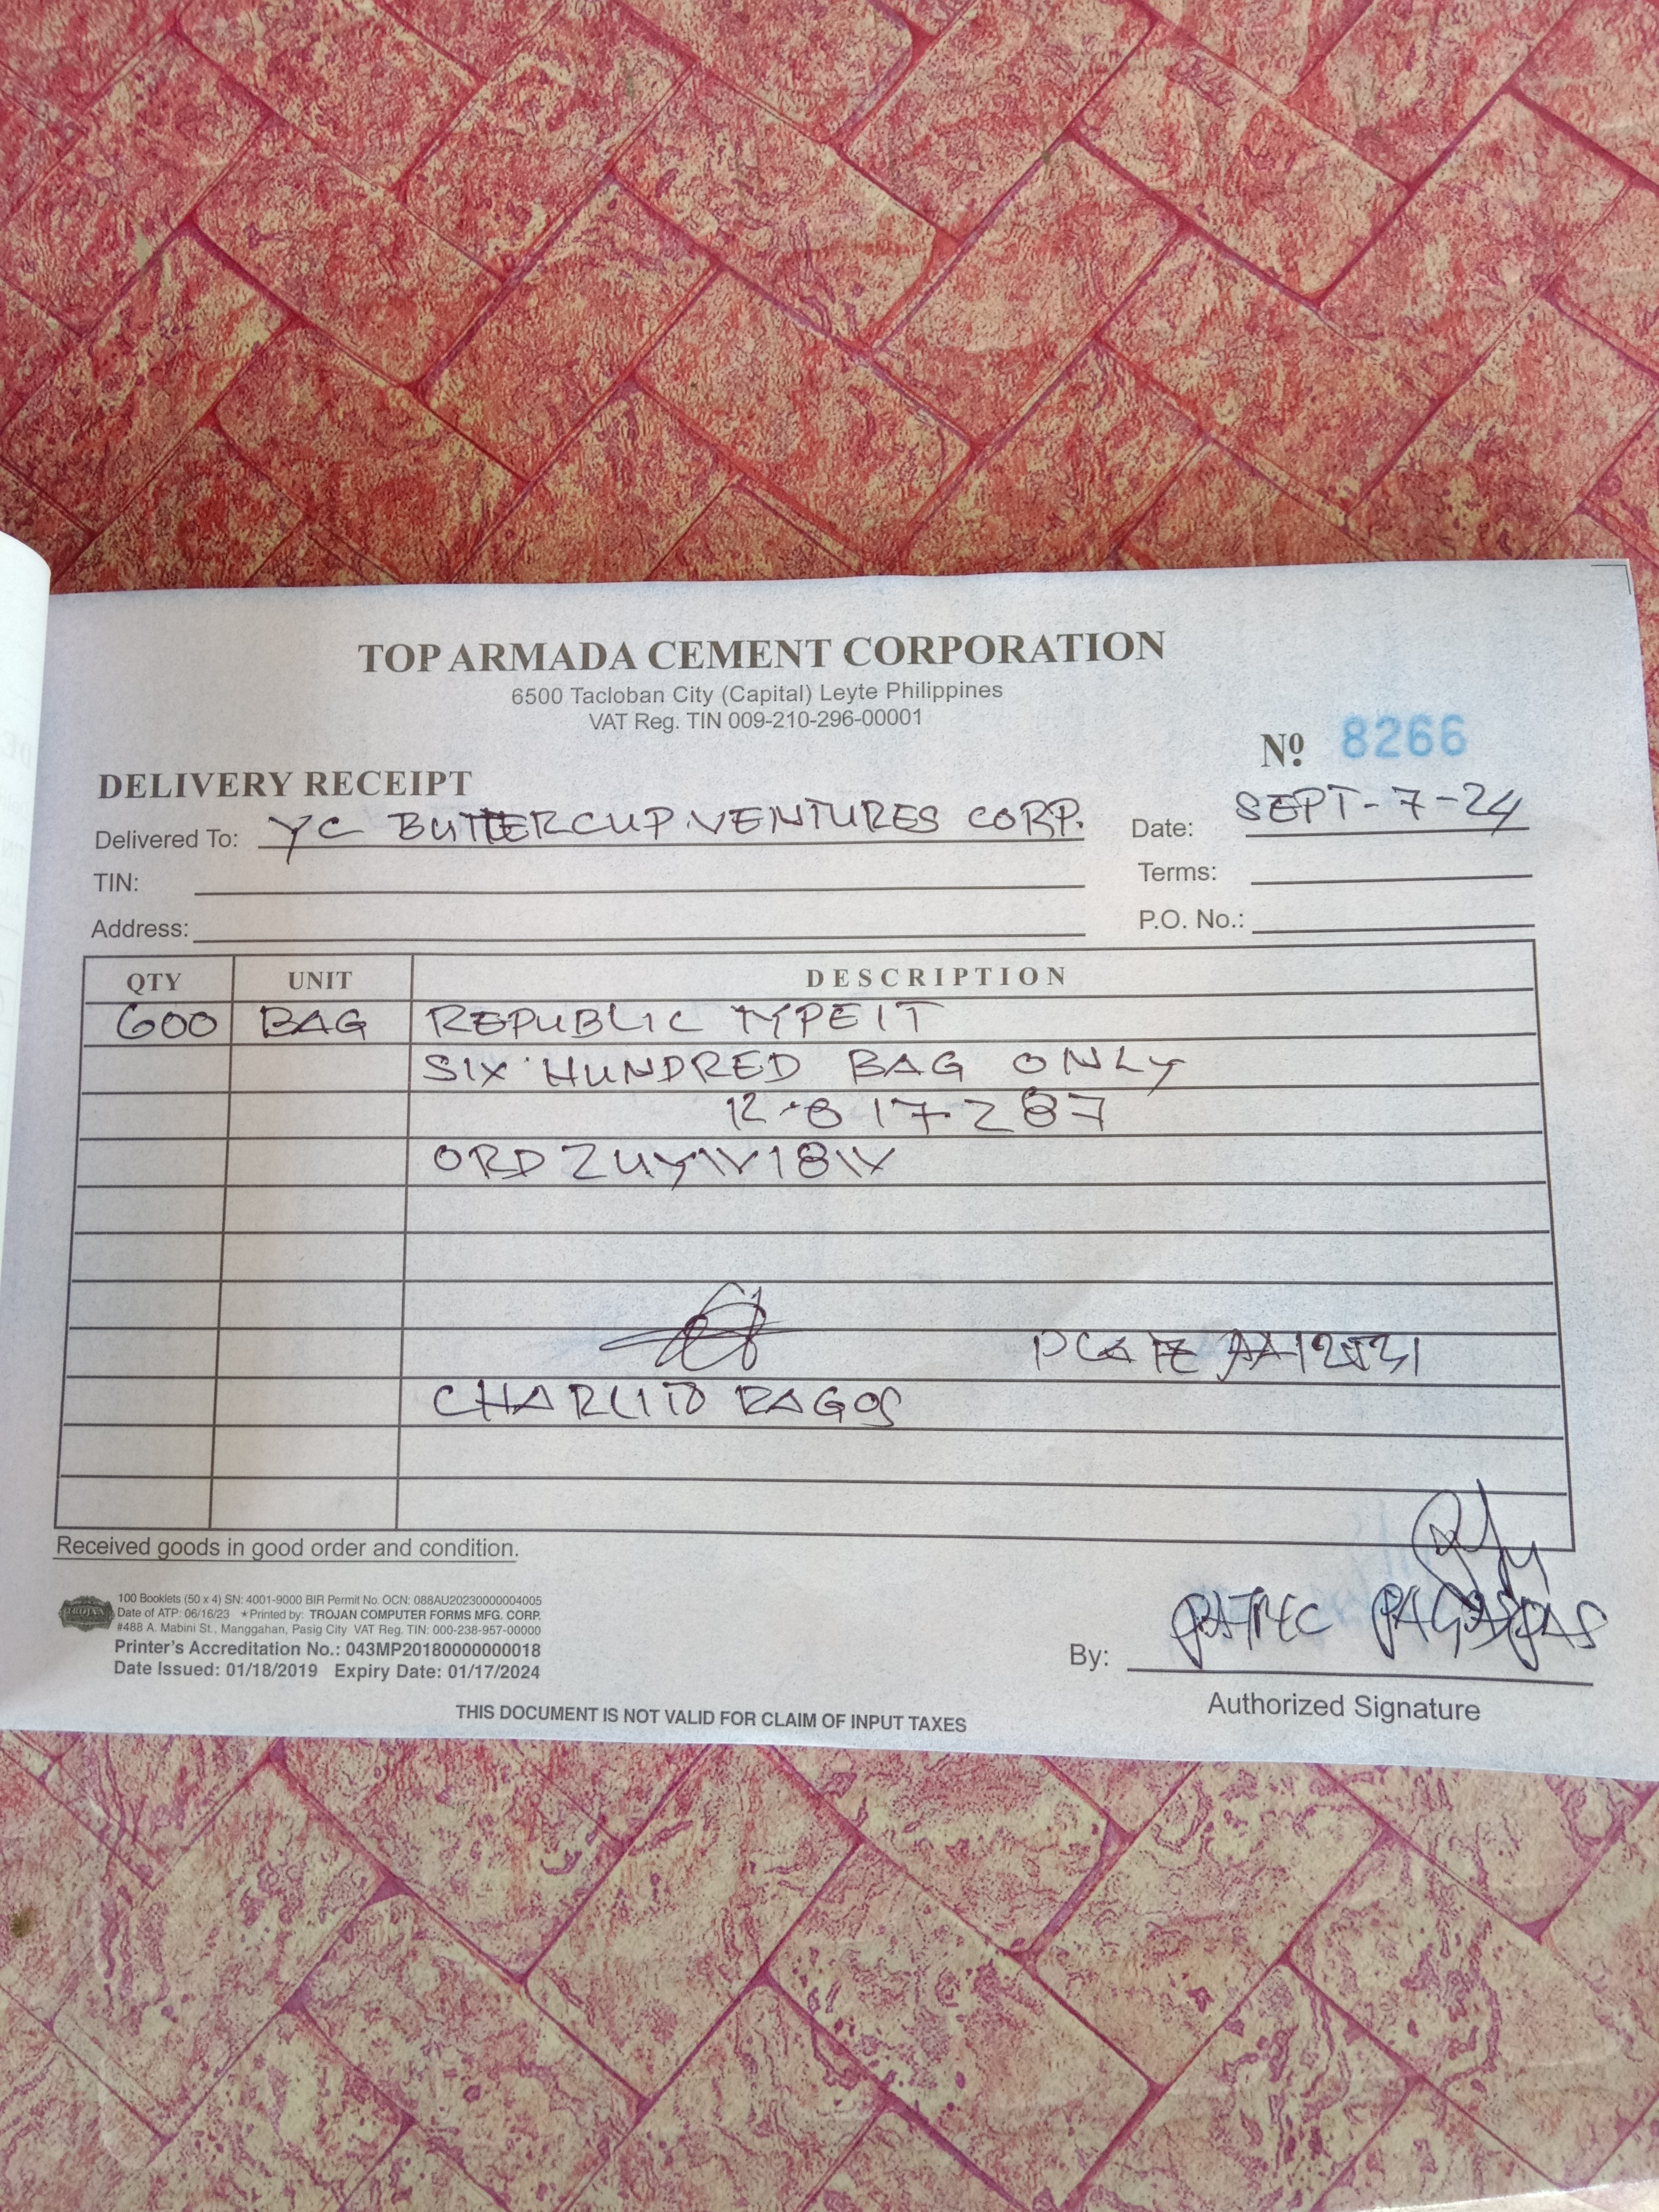 TOP ARMADA CEMENT CORPORATION
6500 Tacloban City (Capital) Leyte Philippines
VAT Reg. TIN 009-210-296-00001
Nº 8266
DELIVERY RECEIPT
Delivered To: YC BUTTERCUP VENTURES CORP. Date: SEPT-7-24
TIN: Terms:
Address: P.O. No.:
QTY UNIT DESCRIPTION
600 BAG REPUBLIC TYPE1T
SIX HUNDRED BAG ONLY
12-817-287
ORD
PLATE
CHARLITO RAGOS
Received goods in good order and condition.
TROJAN
100 Booklets (50 x 4) SN: 4001-9000 BIR Permit No. OCN: 088AU20230000004005
Date of ATP: 06/16/23 ★Printed by: TROJAN COMPUTER FORMS MFG. CORP.
#488 A. Mabini St., Manggahan, Pasig City VAT Reg. TIN: 000-238-957-00000
Printer's Accreditation No.: 043MP20180000000018
Date Issued: 01/18/2019 Expiry Date: 01/17/2024
By:
Authorized Signature
THIS DOCUMENT IS NOT VALID FOR CLAIM OF INPUT TAXES